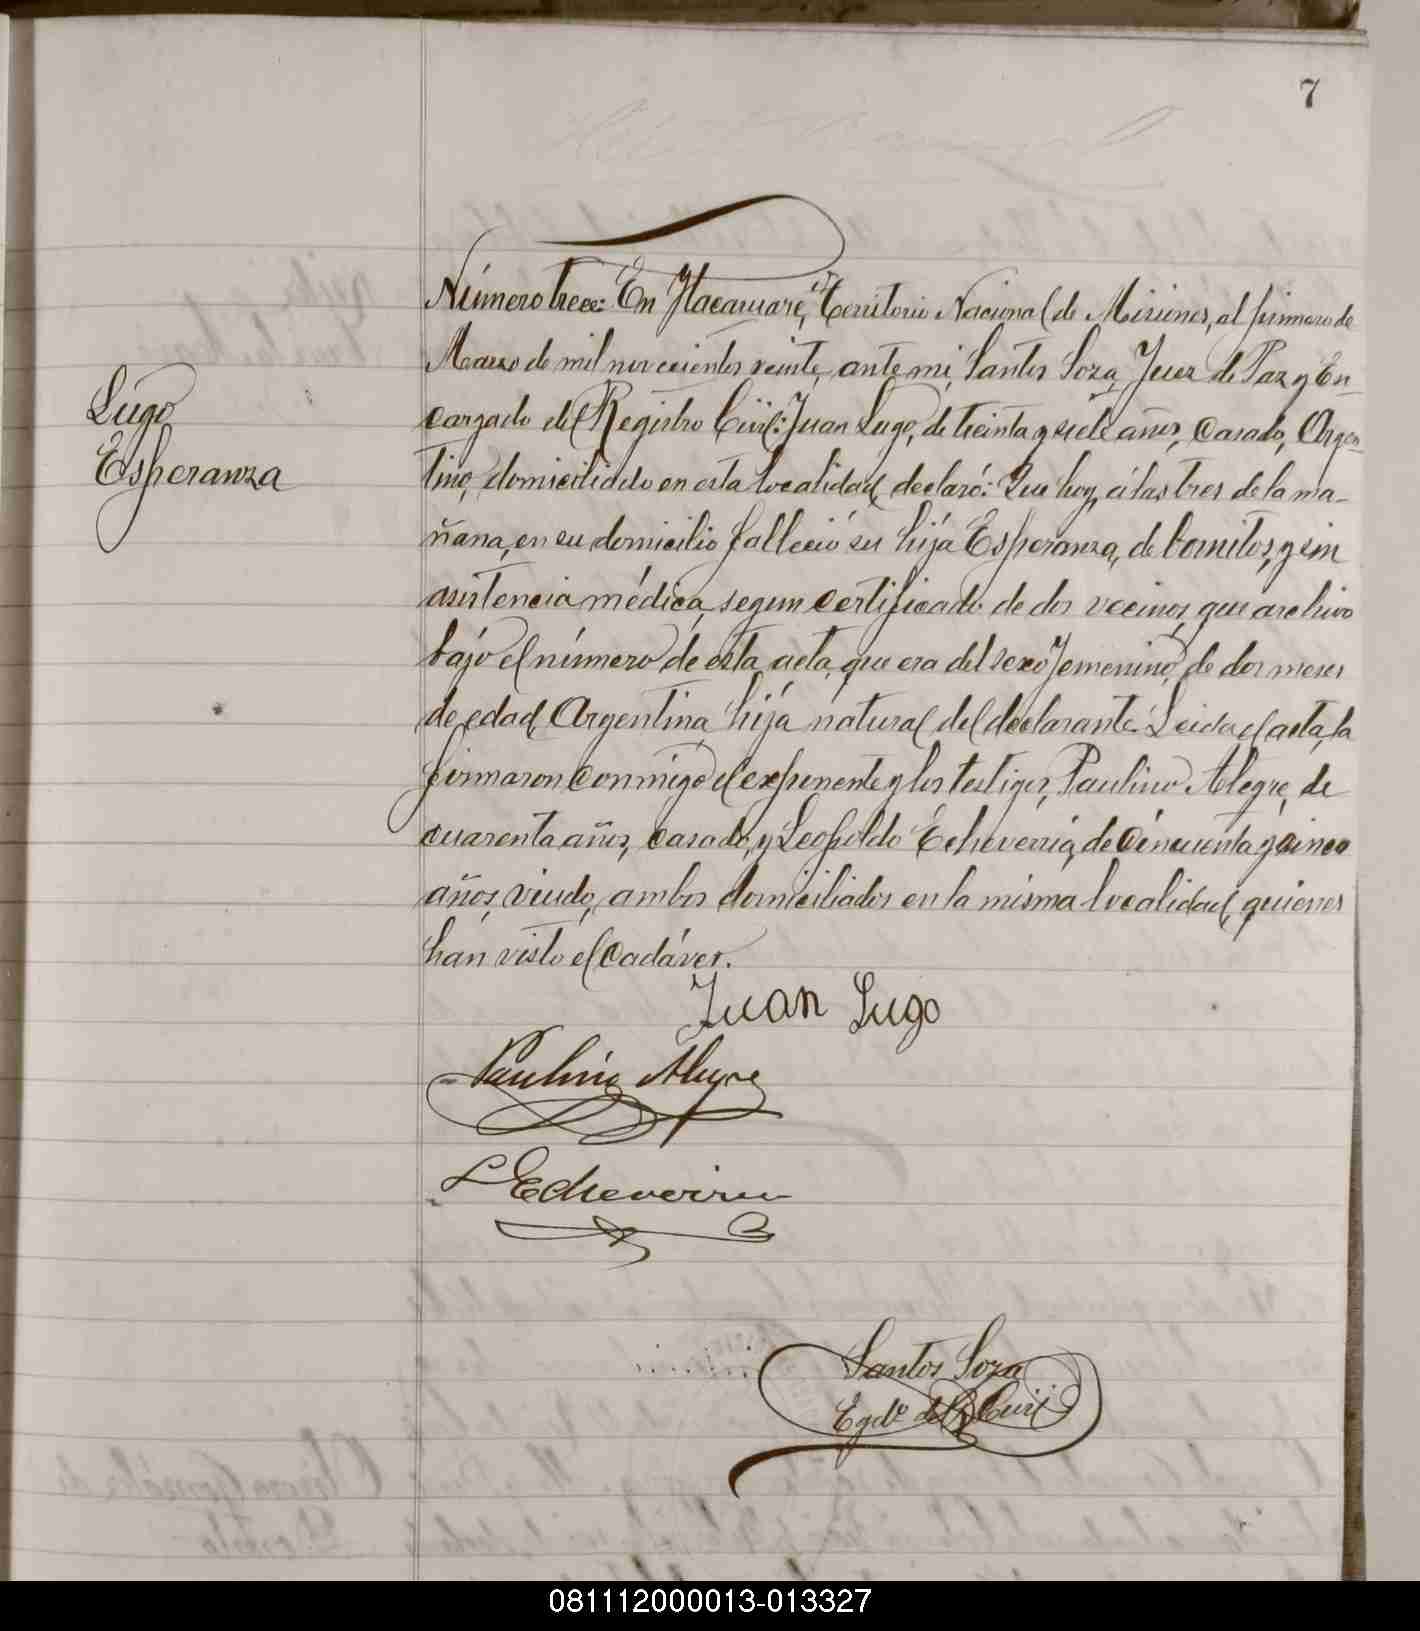 7
Número trece: En Itacaruaré, Territorio Nacional de Misiones, al primero de
Marzo de mil novecientos veinte, ante mi, Santos Soza, Juez de Paz y En-
Lugo
Esperanza
cargado del Registro Civil: Juan Lugo, de treinta y siete años, casado, Argen-
tino, domiciliado en esta localidad, declaró: Que hoy, á las tres de la ma-
ñana, en su domicilio falleció su hija Esperanza, de vomitos, y sin
asistencia médica, segun certificado de dos vecinos, que archivo
bájo el número de esta acta, que era del sexo femenino, de dos meses
de edad, Argentina, hija natural del declarante. Leida el acta, la
firmaron conmigo el exponente y los testigos, Paulino Alegre, de
cuarenta años, casado, y Leopoldo Echeverria, de cincuenta y cinco
años, viudo, ambos domiciliados en la misma localidad, quienes
han visto el cadáver.
Juan Lugo
Paulino Alegre
L Echeverria
Santos Soza
Egdo del R. Civil
081112000013-013327